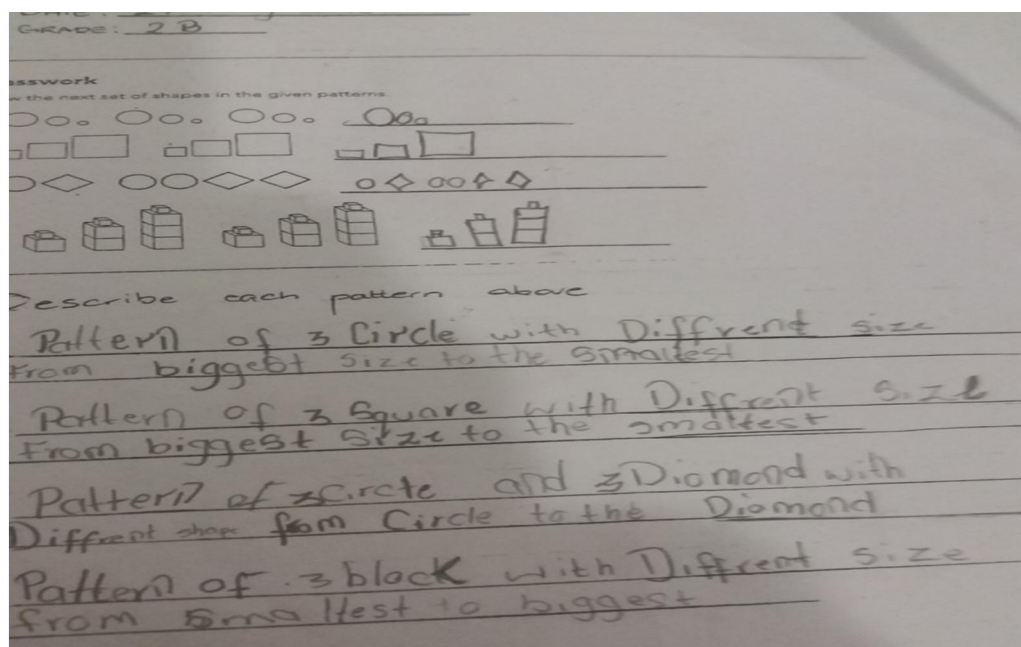 GRADE: 2 B
asswork
w the next set of shapes in the given patterns.
Describe each pattern above
Pattern of 3 Circle with Diffrent size
From biggest size to the smallest
Pattern of 3 Square with Diffrent size
From biggest size to the smallest
Pattern of 3 Circle and 3 Diomond with
Diffrent shape from Circle to the Diomond
Pattern of 3 block with Diffrent size
from smallest to biggest